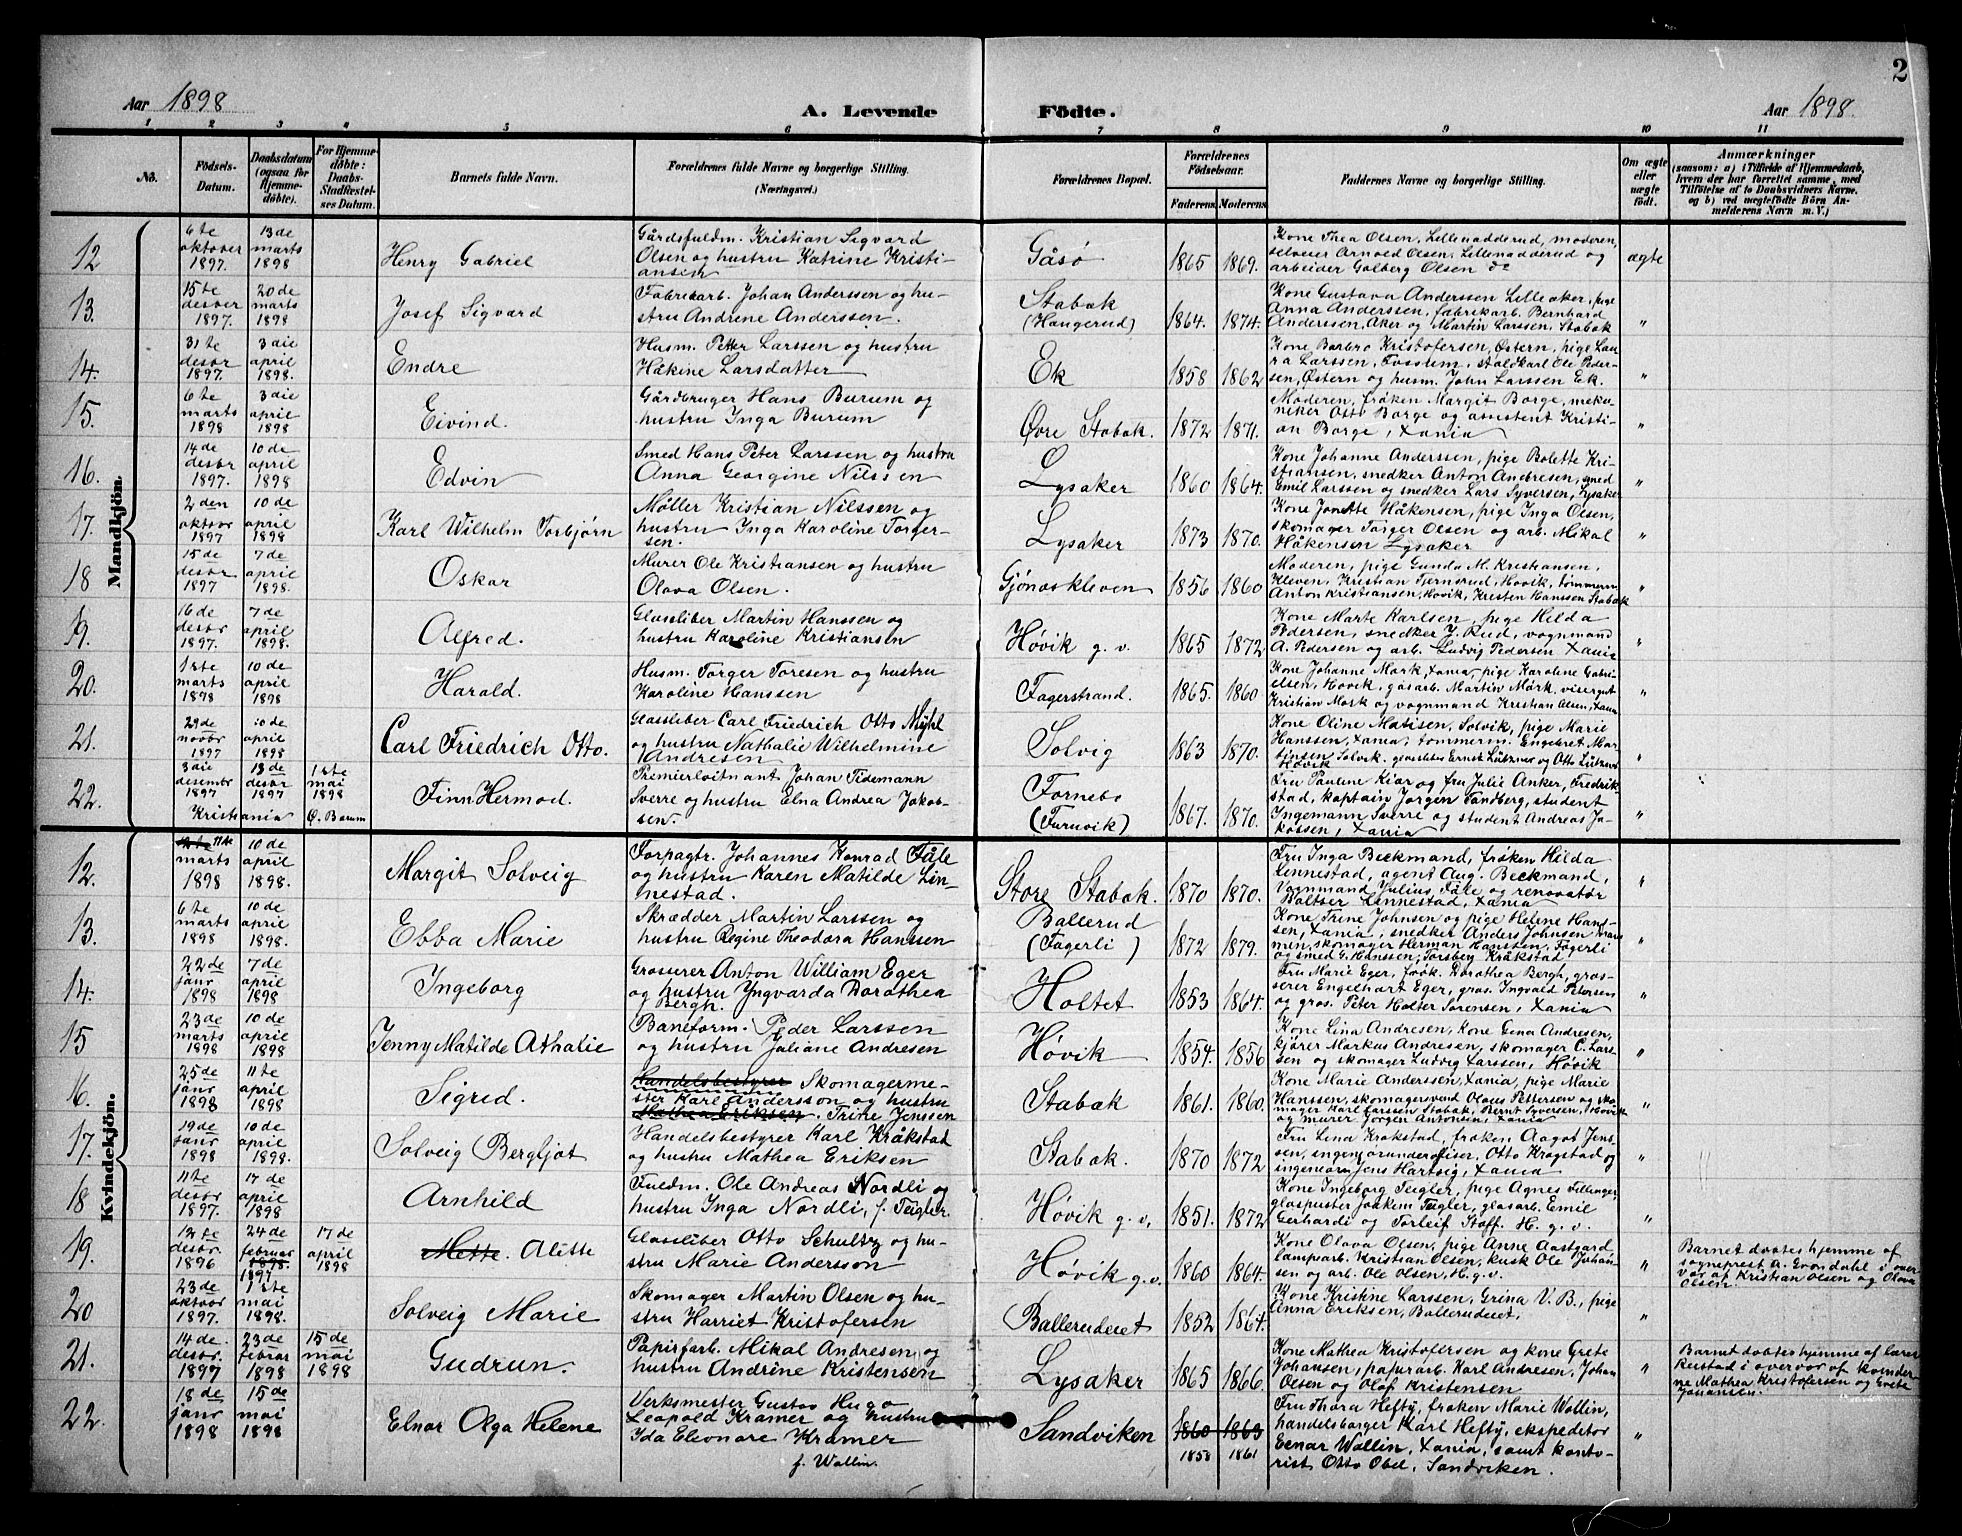 2
Aar 1898
A. Levende
Födte.
Aar 1898.
1 2 3 4 5 6 7 8 9 10 11
No.
Födsels-
Datum.
Daabsdatum
(ogsaa for
Hjemme-
döbte).
For Hjemme-
döbte:
Daabs-
Stadfæstel-
ses Datum.
Barnets fulde Navn.
Forældrenes fulde Navne og borgerlige Stilling.
(Næringsvei.)
Forældrenes Bopæl.
Forældrenes
Födselsaar.
Faderens. Moderens.
Faddernes Navne og borgerlige Stilling.
Om ægte
eller
uægte
födt.
Anmærkninger
(saasom: a) i Tilfælde af Hjemmedaab,
hvem der har forrettet samme, med
Tilföielse af to Daabsvidners Navne,
og b) ved uægtefödte Börn An-
melderens Navn m. V.)
Mandkjön.
12
6te
oktober
1897.
13de
marts
1898
Henry Gabriel
Gårdsfuldm. Kristian Sigvard
Olsen og hustru Katrine Kristi-
ansen
Gåsø
1865 1869.
Kone Thea Olsen, Lillenadderud, moderen,
selveier Arnold Olsen, Lillenadderud og
arbeider Golberg Olsen do
ægte
13.
15te
desber
1897.
20de
marts
1898
Josef Sigvard
Fabrekarb. Johan Anderssen og hu-
stru Andrene Anderssen.
Stabæk
(Haugerud)
1864. 1874.
Kone Gustava Anderssen Lilleaker, pige
Anna Anderssen, fabrekarb. Bernhard
Anderssen, Aker og Martin Larssen, Stabæk
"
14.
31te
desbr
1897.
3die
april
1898.
Endre
Husm. Petter Larssen og hustru
Håkine Larsdatter
Ek
1858 1862
Kone Barbro Kristofersen, Østern, pige Lau-
ra Larssen, Fossum, staldkarl Ole Peder-
sen, Østern og husm. John Larssen Ek.
"
15.
6te
marts
1898
3die
april
1898
Eivind.
Gårdbruger Hans Burum og
hustru Inga Burum
Øvre Stabæk.
1872 1871.
Moderen, frøken Margit Borge, meka-
niker Otto Borge og assistent Kristi-
an Borge, Xania
"
16.
14de
desbr
1897.
10de
april
1898
Edvin
Smed Hans Peter Larssen og hustru
Anna Georgine Nilssen
Lysaker
1860 1864.
Kone Johanne Anderssen, pige Bolette Kri-
stiansen, snedker Anton Andresen, smed
Emil Larssen og snedker Lars Syversen, Lysaker
"
17.
2den
oktbr
1897
10de
april
1898
Karl Wilhelm Torbjørn
Møller Kristian Nilssen og
hustru Inga Karoline Torger-
sen.
Lysaker
1873 1870.
Kone Jonette Håkensen, pige Inga Olsen,
skomager Torger Olsen og arb. Mikal
Håkensen Lysaker
"
18
15de
desbr
1897
7de
april
1898.
Oskar
Murer Ole Kristiansen og hustru
Olava Olsen.
Gjønneskleven
1856 1860
Moderen, pige Gunda M. Kristiansen,
Kleven, Kristian Ternsrud, Høvik, tømmerm
Anton Kristiansen, Høvik, Kresten Hanssen Stabæk
"
19.
16de
desbr
1897.
7de
april
1898.
Alfred.
Glassliber Martin Hanssen og
hustru Karoline Kristiansen
Høvik g. v.
1865 1872
Kone Marte Karlsen, pige Hilda
Pedersen, snedker J. Rud, vognmand
A. Pedersen og arb. Ludvig Pedersen Xania
"
20.
1ste
marts
1898
10de
april
1898
Harald.
Husm. Torger Toresen og hustru
Karoline Hanssen
Fagerstrand.
1865. 1860
Kone Johanne Mørk, Xania, pige Karoline Gabri-
elsen, Høvik, gåsarb. Martin Mørk, visergut
Kristian Mørk og vognmand Kristian Olsen, Xania
"
21.
29de
novbr
1897
10de
april
1898
Carl Friedrich Otto.
Glassliber Carl Friedrich Otto Mühl
og hustru Nathalie Wilhelmine
Andresen
Solvig
1863 1870.
Kone Oline Matisen, Solvik, pige Marie
Hanssen, Xania, tømmerm. Engebret Mar-
tinsen Solvik, glassliber Ernst Lützner og Otto Lützner
Høvik
"
22.
3die
desember
1897
Kristiania
13de
desbr
1897
1ste
mai
1898
Ø. Bærum
Finn Hermod.
Premierløitnant Johan Tidemann
Sverre og hustru Elna Andrea Jakob-
sen.
Fornebo
(Furuvik)
1867. 1870.
Fru Pauline Kiær og fru Julie Anker, Fredrik-
stad, kaptain Jørgen Sandberg, student
Ingemann Sverre og student Andreas Ja-
kobsen, Xania
"
Kvindekjön.
12.
12te 11te
marts
1898
10de
april
1898.
Margit Solveig
Forpagtr. Johannes Konrad Fåle
og hustru Karen Matilde Lin-
nestad.
Store Stabæk.
1870 1870.
Fru Inga Beckmand, frøken Hilda
Lennestad, agent Aug. Beckmand,
Vognmand Julius Fåle og renovatør
Waltser Lennestad, Xania
"
13.
6te
marts
1898
10de
april
1898.
Ebba Marie
Skrædder Martin Larssen og
hustru Regine Theodora Hanssen
Ballerud
(Fagerli)
1872 1879.
Kone Trine Johnsen og pige Helene Hans-
sen, Xania, snedker Anders Johnsen
skomager Herman Hanssen, Fagerli
og smed G. Hanssen, Torsberg Kråkstad
"
14.
22de
janr
1898
7de
april
1898
Ingeborg
Grosserer Anton William Eger
og hustru Yngvarda Dorothea
Bergh.
Holtet
1853 1864.
Fru Marie Eger, frøk. Dorothea Bergh, gros-
serer Engelhart Eger, gros. Ingvald Petersen
og gros. Peter Holter Sørensen, Xania
"
15
23de
marts
1898
10de
april
1898
Jenny Matilde Athalie
Baneform. Peder Larssen
og hustru Juliane Andresen
Høvik
1854. 1856
Kone Lina Andresen, kone Gena Andresen,
Gjører Markus Andresen, skomager C. Lars-
sen og skomager Ludvig Larssen, Høvik
"
16.
25de
janr
1898
11te
april
1898
Sigrid.
Handelsbestyrer Skomagerme-
ster Karl Andersson og hustru
Mathea Eriksen. Trine Jenssen
Stabæk
1861. 1860.
Kone Marie Anderssen, Xania, pige Marie
Hanssen, skomagersvend Olaus Pettersen og sko-
mager Karl Larssen Stabæk, Bernt Syversen, Høvik
og murer Jørgen Antonsen, Xania
"
17.
19de
janr
1898
10de
april
1898.
Solveig Bergljot
Handelsbestyrer Karl Kråkstad
og hustru Mathea Eriksen
Stabæk.
1870 1872
Fru Lena Krokstad, frøken Aagot Jens-
sen, ingeniørunderofiser, Otto Krogstad og
ingeniør Jens Hartvig, Xania
"
18
11te
desbr
1897.
17de
april
1898
Arnhild
Fuldm. Ole Andreas Nordli og
hustru Inga Nordli, f. Teigler.
Høvik g. v.
1851. 1872
Kone Ingeborg Teigler, pige Agnes Fillinger,
glaspuster Joakim Teigler, glasarb. Emil
Gerhardi og Torleif Stoff. H. g. v.
"
19.
12te
desbr.
1896
24de
februar
1898.
1897
17de
april
1898
Mette. Alitte
Glassliber Otto Schultz og hu-
stru Marie Andersson
Høvik g. v.
1860 1864.
Kone Olava Olsen, pige Anne Aastgard
lamparb. Kristian Olsen, kusk Ole Johan-
sen og arb. Ole Olsen, H. g. v.
"
Barnet døbtes hjemme af
sogneprest A. Grøndahl i over-
vær af Kristian Olsen og Olava
Olsen.
20
23de
oktobr
1897.
1ste
mai
1898.
Solveig Marie
Skomager Martin Olsen og hu-
stru Harriet Kristofersen
Balleruderet
1852 1864.
Kone Kristine Larssen, Grina V. B., pige
Anna Eriksen, Balleruderet,
"
21.
14de
desbr.
1897
23de
februar
1898
15de
mai
1898
Gudrun.
Papirfarb. Mikal Andresen og
hustru Andrine Kristensen
Lysaker
1865 1866.
Kone Mathea Kristofersen og kone Grete
Johansen, papirarb. Karl Andresen, Johan
Olsen og Olaf Kristensen
"
Barnet døbtes hjemme af lærer
Rustad i overvær af kvinder-
ne Mathea Kristofersen og Grete
Johansen.
22.
18de
janr
1898
15de
mai
1898
Elnar Olga Helene
Verksmester Gustav Hugo
Leopold Kramer og hustru
Ida Eleonare Kramer
f. Wallin.
Sandviken
1860 1863
1858 1861
Fru Thora Hefty, frøken Marie Wallin,
handelsborger Karl Hefty, ekspeditør
Eenar Wallin, Xania, samt konto-
rist Otto Obel, Sandviken.
"